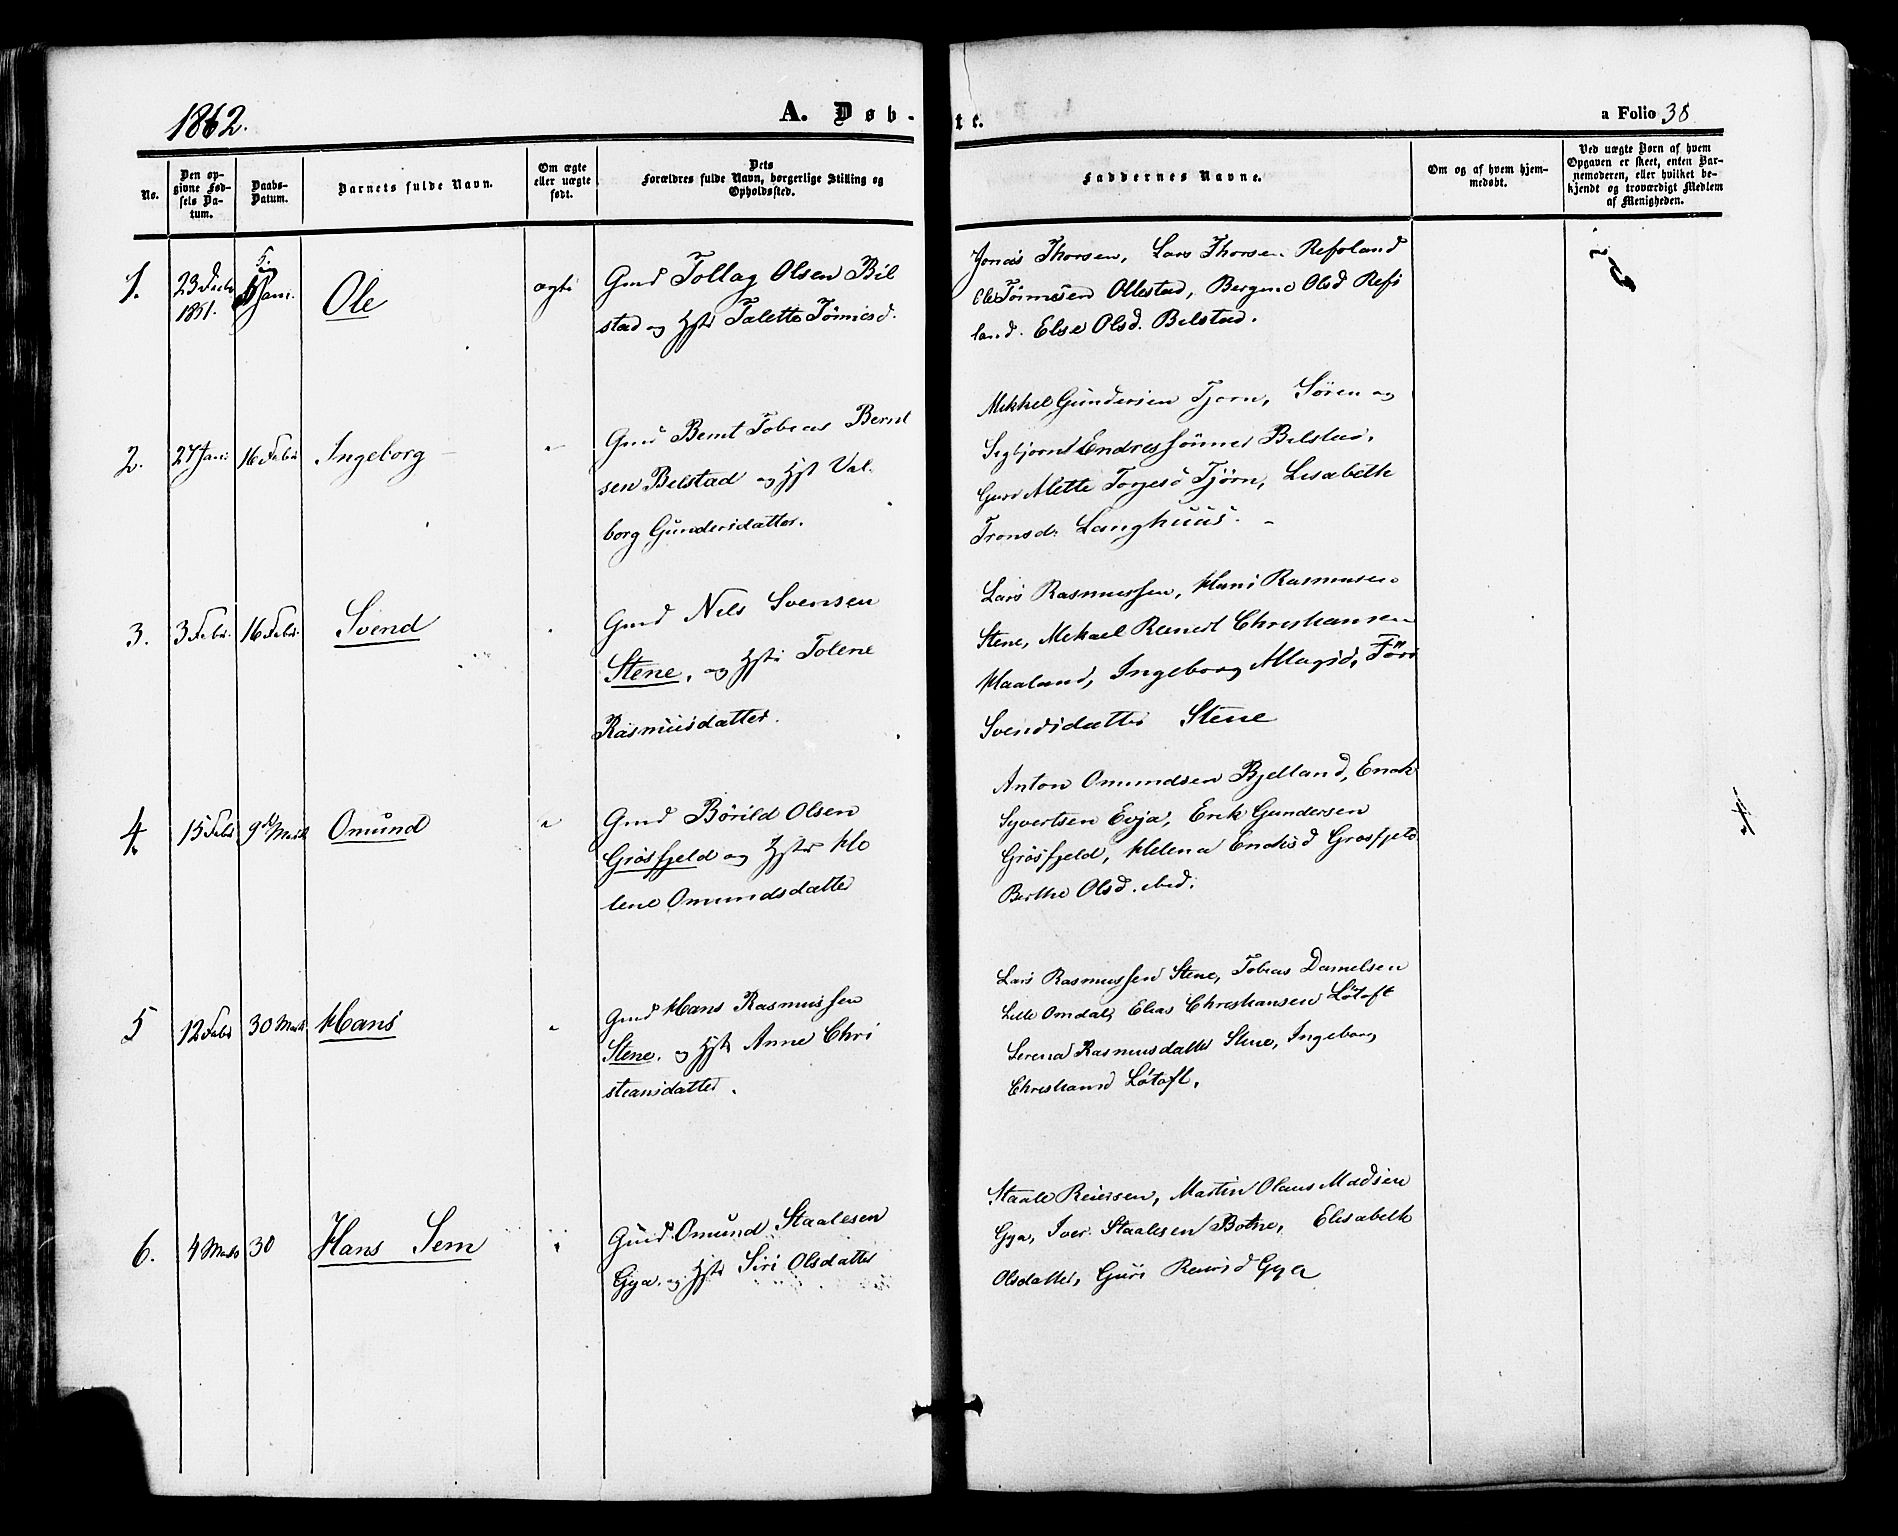 1862.
A. Døb-
te.
a Folio 38
No.
Den op-
givne Fød-
sels Da-
tum.
Daabs-
Datum.
Barnets fulde Navn.
Om ægte
eller uægte
født.
Dets
Forældres fulde Navn, borgerlige Stilling og
Opholdssted.
Faddernes Navne.
Om og af hvem hjem-
medøbt.
Ved uægte Børn af hvem
Opgaven er skeet, enten Bar-
nemoderen, eller hvilket be-
kjendt og troværdigt Medlem
af Menigheden.
1.
23 Decbr
1851.
5.
Jani.
Ole
ægte
Gmd Tollag Olsen Bil
stad og Hst Talette Tønnesd.
Jonas Thorsen, Lars Thorsen Refsland
Ole Tönnesen Ollestad, Bergine Olsd Refs
land. Else Olsd. Bilstad.
2.
27 Jani
16 Febr
Ingeborg
"
Gmd Bernt Tobias Bernt
sen Bilstad og Hst Val-
borg Gundersdatter.
Mikkel Gundersen Tjorn, Sören og
Sigbjornt Endressönner Bilstad,
Guro Mette Torgesd Tjörn, Lisabeth
Tronsd. Langhuus.
3.
3 Febr.
16 Febr.
Svend
"
Gmd Nils Svensen
Stene, og Hst Tolene
Rasmusdatter.
Lars Rasmussen, Hans Rasmusen
Stene, Mikael Reinert Christiansen
Haaland, Ingeborg Allagsd, Töri
Svendsdatter Stene
4.
15 Febr
9de Marts
Omund
"
Gmd Börild Olsen
Grösfjeld og Hst He
lene Omundsdatter
Anton Omundsen Bjelland, Enok
Syvertsen Evja, Erik Gundersen
Grösfjeld, Helena Enoksd Grosfjeld
Berthe Olsd. ibid.
5
12 Febr
30 Marts
Hans
"
Gmd Hans Rasmussen
Stene. og Hst Anne Chri
stiansdatter.
Lars Rasmussen Stene, Tobias Danielsen
Lille Omdal, Elias Christiansen Lötoft
Serena Rasmusdatter Stene, Ingeborg
Christiansd Lötoft.
6.
4 Marts
30
Hans Sem
"
Gmd. Omund Staalesen
Gya. og Hst Siri Olsdatter
Staale Reiersen, Martin Olaus Madsen
Gya, Iver Staalesen Botne, Elisabeth
Olsdatter, Guri Reiersd Gya